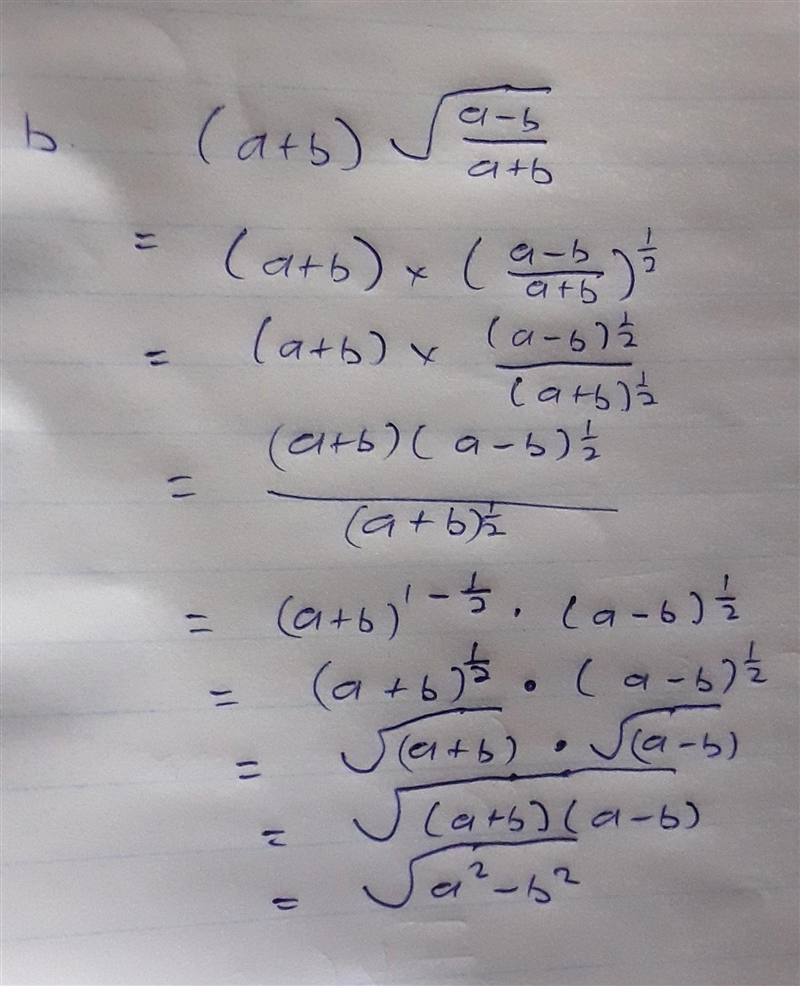 b. (a+b) √((a-b)/(a+b))
= (a+b) × ((a-b)/(a+b))^(1/2)
= (a+b) × (a-b)^(1/2)/(a+b)^(1/2)
= (a+b)(a-b)^(1/2)/(a+b)^(1/2)
= (a+b)^(1-1/2) . (a-b)^(1/2)
= (a+b)^(1/2) . (a-b)^(1/2)
= √(a+b) . √(a-b)
= √((a+b)(a-b))
= √(a²-b²)